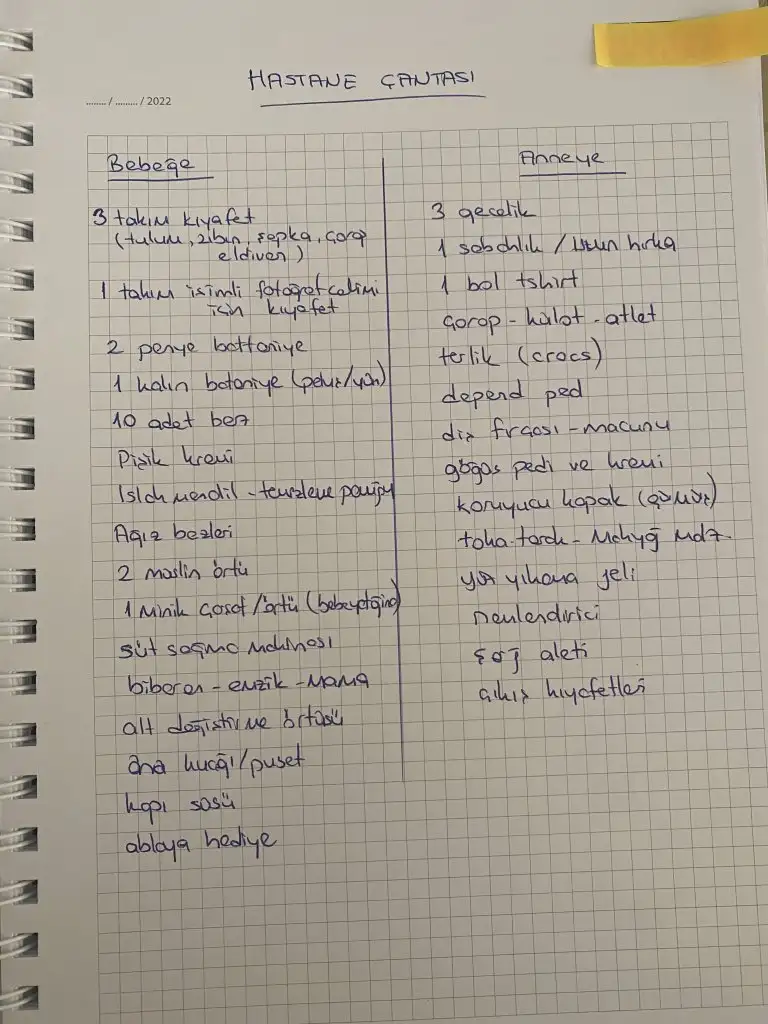 HASTANE ÇANTASI
......../ ......... / 2022
Bebeğe
3 takım kıyafet
(tulum, zıbın, şapka, çorap
eldiven)
1 takım isimli fotoğraf çekimi
için kıyafet
2 penye battaniye
1 kalın bataniye (peluş/yün)
10 adet bez
Pişik kremi
Islak mendil - temizleme pamuğu
Ağız bezleri
2 müslin örtü
1 minik çarşaf/örtü (bebeyatağına)
süt sağma makinası
biberon - emzik - mama
alt değiştirme örtüsü
ana kucağı/puset
kapı süsü
ablaya hediye
Anneye
3 gecelik
1 sabahlık / uzun hırka
1 bol tshirt
çorap - külot - atlet
terlik (crocs)
depend ped
diş fırçası - macunu
göğüs pedi ve kremi
koruyucu kapak (gümüş)
toka-tarak - makyaj malz.
yüz yıkama jeli
nemlendirici
şarj aleti
çıkış kıyafetleri